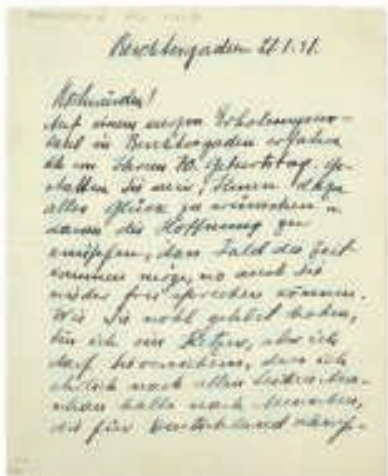 Berchtesgaden
Hochwürden!
Auf einem
in Berchtesgaden erfahre
ich von Ihrem 70. Geburtstag. Ge-
statten Sie mir, Ihnen dazu
alles Glück zu wünschen u.
daran die Hoffnung zu
knüpfen, dass bald die Zeit
kommen möge, wo auch Sie
wieder frei sprechen können.
Wie Sie wohl gehört haben,
bin ich ein Ketzer, aber ich
darf, dass ich
ehrlich nach allen Seiten
halte nach Menschen,
die für Deutschland